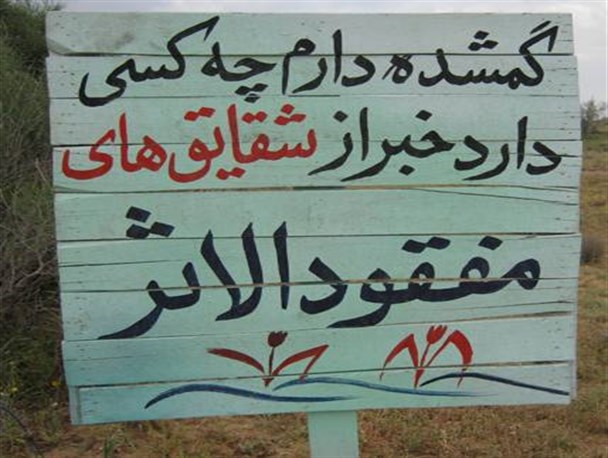 گمشده دارم چه کسی
دارد خبر از شقایق های
مفقود الاثر